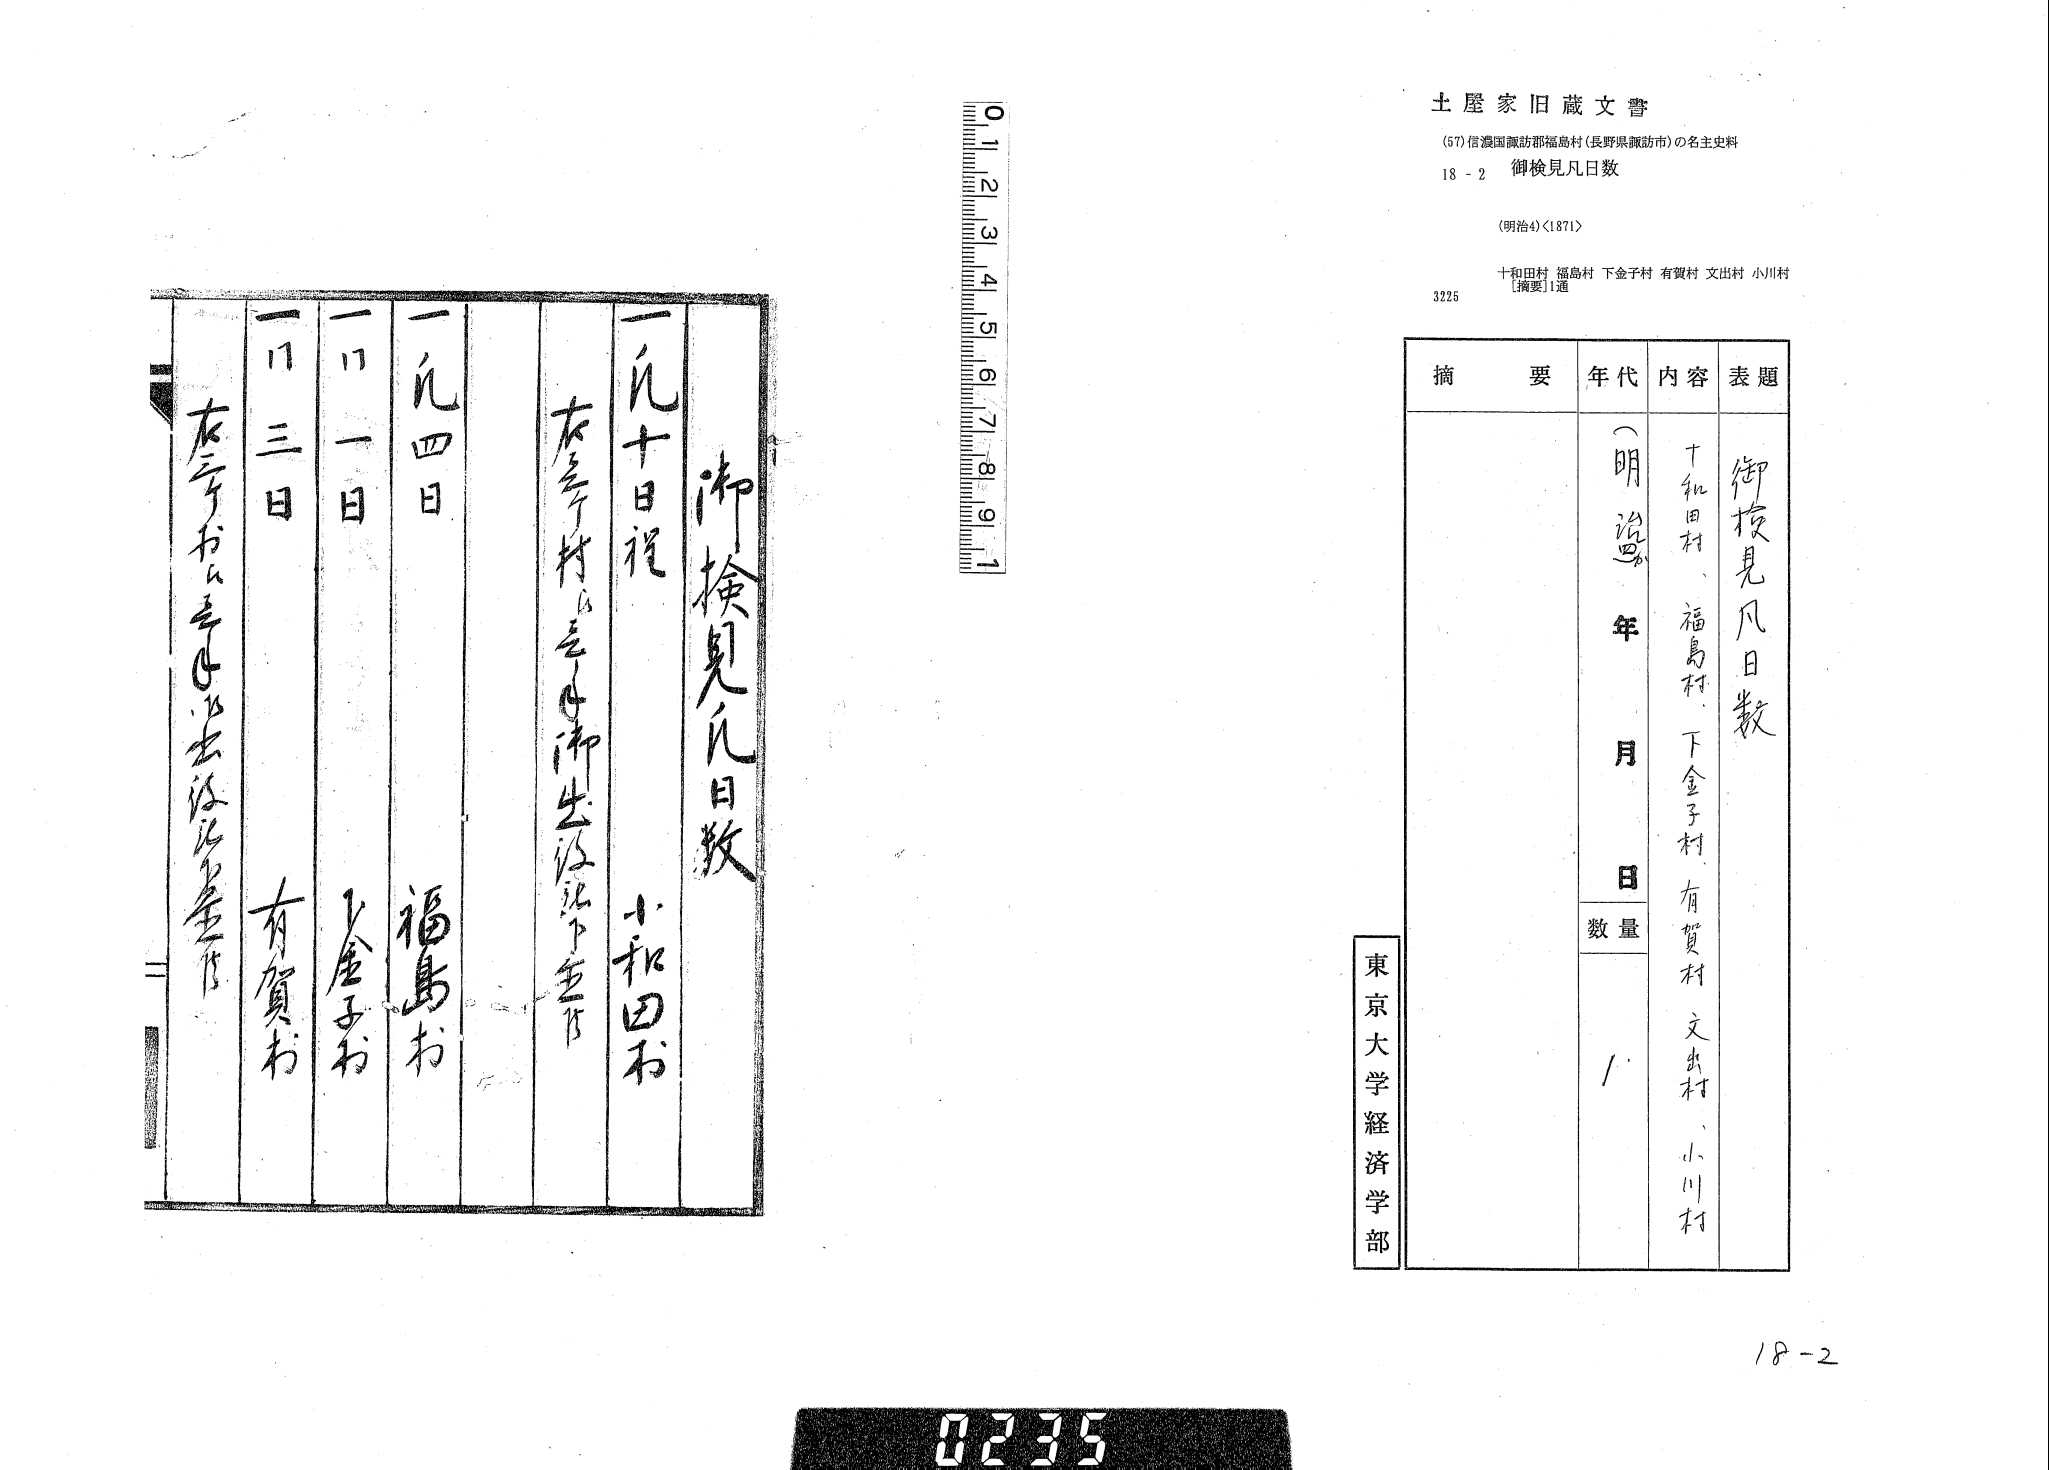 土屋家旧蔵文書
(57)信濃国諏訪郡福島村(長野県諏訪市)の名主史料
18-2 御検見凡日数
(明治4)<1871>
十和田村 福島村 下金子村 有賀村 文出村 小川村
[摘要]1通
3225
表題
御検見凡日数
内容
十和田村、福島村、下金子村、有賀村 文出村、小川村
年代
(明治四か 年 月 日
数量
1
摘要
東京大学経済学部
18-2
0 1 2 3 4 5 6 7 8 9 1
御検見凡日数
一凡十日程 小和田村
右壱ケ村江壱手御出役
一凡四日 福島村
一同一日 下金子村
一同三日 有賀村
右三ケ村江壱手御出役
0235